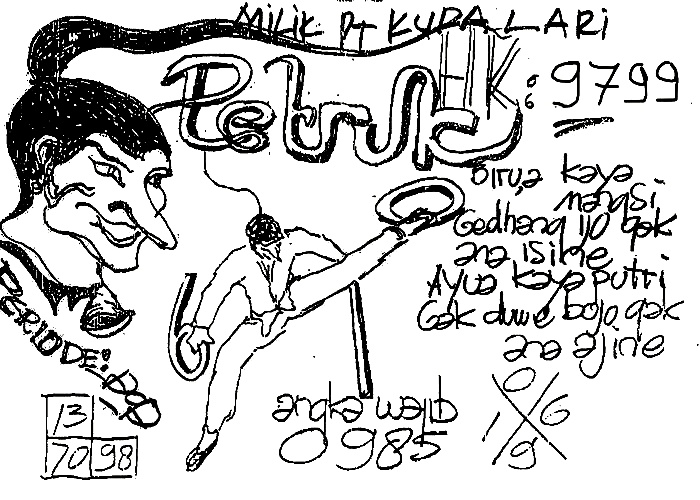 MILIK PT KUDA LARI
Petruk
HK: 9799
Birua kaya
mangsi
Gedhang ijo gak
ana isine
Ayua kaya putri
Gak duwe bojo gak
ana ajine
PERIODE:
angka wajib
0985
13
70 98
0
1 6
9